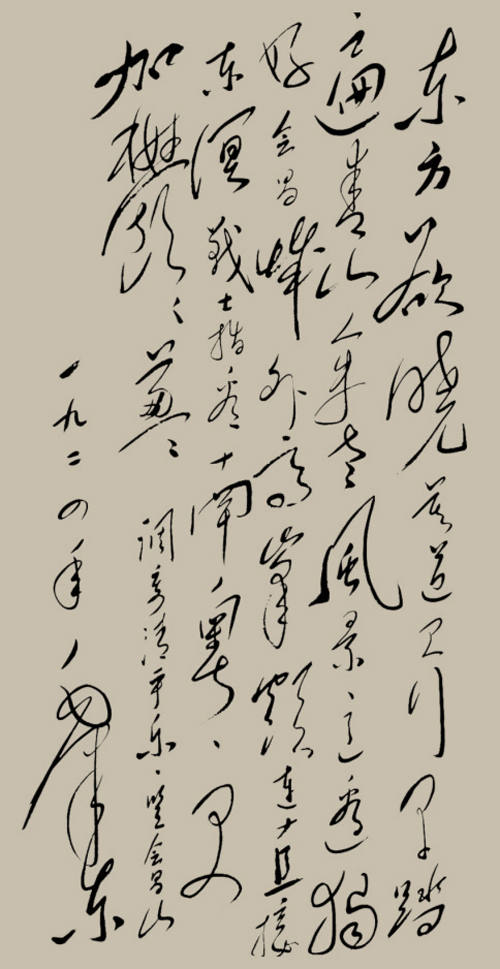 东方欲晓莫道君行早踏
遍青山人未老風景这边獨
好会昌城外高峯顛連直接
东溟戰士指看南粤更
加鬱々葱々調寄清平乐登会昌山
一九三四年毛泽东